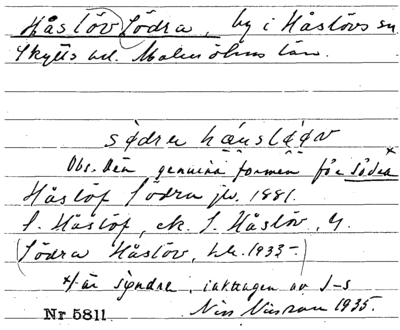 Håslöv Södra, by i Håslövs sn
Skytts hd. Malmöhus län.
södra
Obs. Den genuina formen för Södra x
Håslöf Södra jb. 1881.
S. Håslöf, ek. S. Håslöv, G.
(Södra Håslöv, hl. 1933-)
x) är syndre, inktagen av J-S
Nils Nilsson 1935.
Nr 5811.